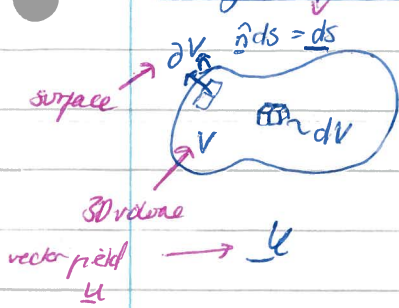 n̂ds = ds
∂V
n̂
surface
dV
V
3D volume
vector field
u
u